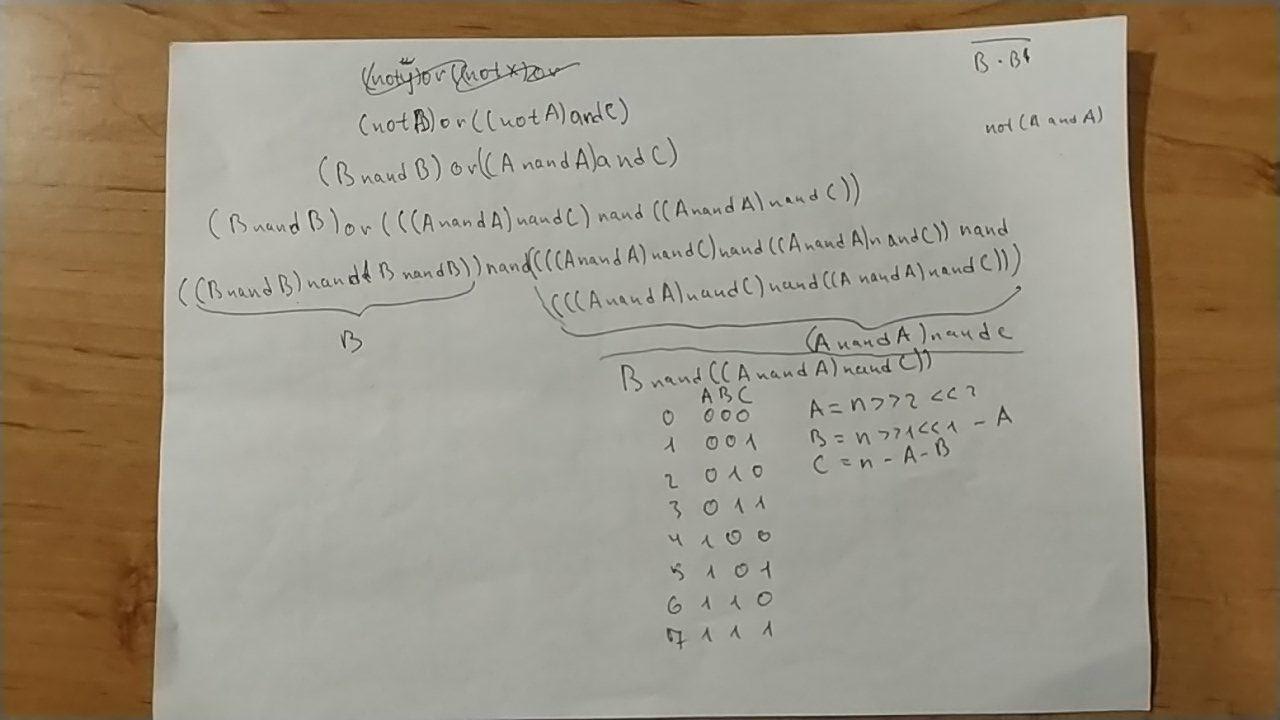 (not y) or ((not x) or
B · B
(not B) or ((not A) and C)
not (A and A)
(B nand B) or ((A nand A) and C)
(B nand B) or (((A nand A) nand C) nand ((A nand A) nand C))
((B nand B) nand (B nand B)) nand ((((A nand A) nand C) nand ((A nand A) nand C)) nand
(((A nand A) nand C) nand ((A nand A) nand C)))
B
(A nand A) nand C
B nand ((A nand A) nand C))
A B C
0 0 0 0 A = n >> 2 << 2
1 0 0 1 B = n >> 1 << 1 - A
2 0 1 0 C = n - A - B
3 0 1 1
4 1 0 0
5 1 0 1
6 1 1 0
7 1 1 1